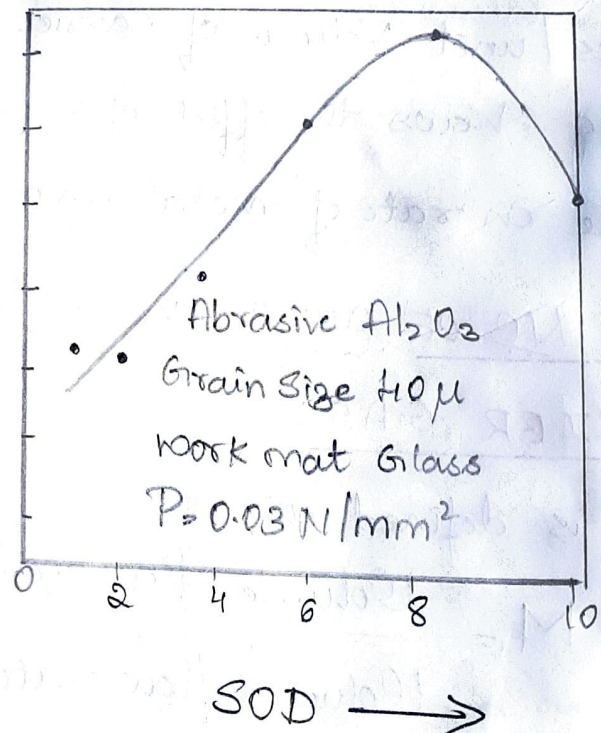 Abrasive Al2O3
Grain Size 40 μ
work mat Glass
P = 0.03 N/mm²
0 2 4 6 8 10
SOD →